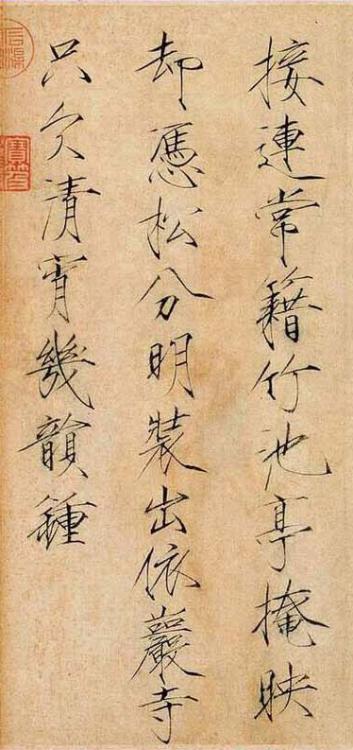 接連常籍竹池亭掩映
却憑松分明裝出依巖寺
只欠清宵幾韻鍾